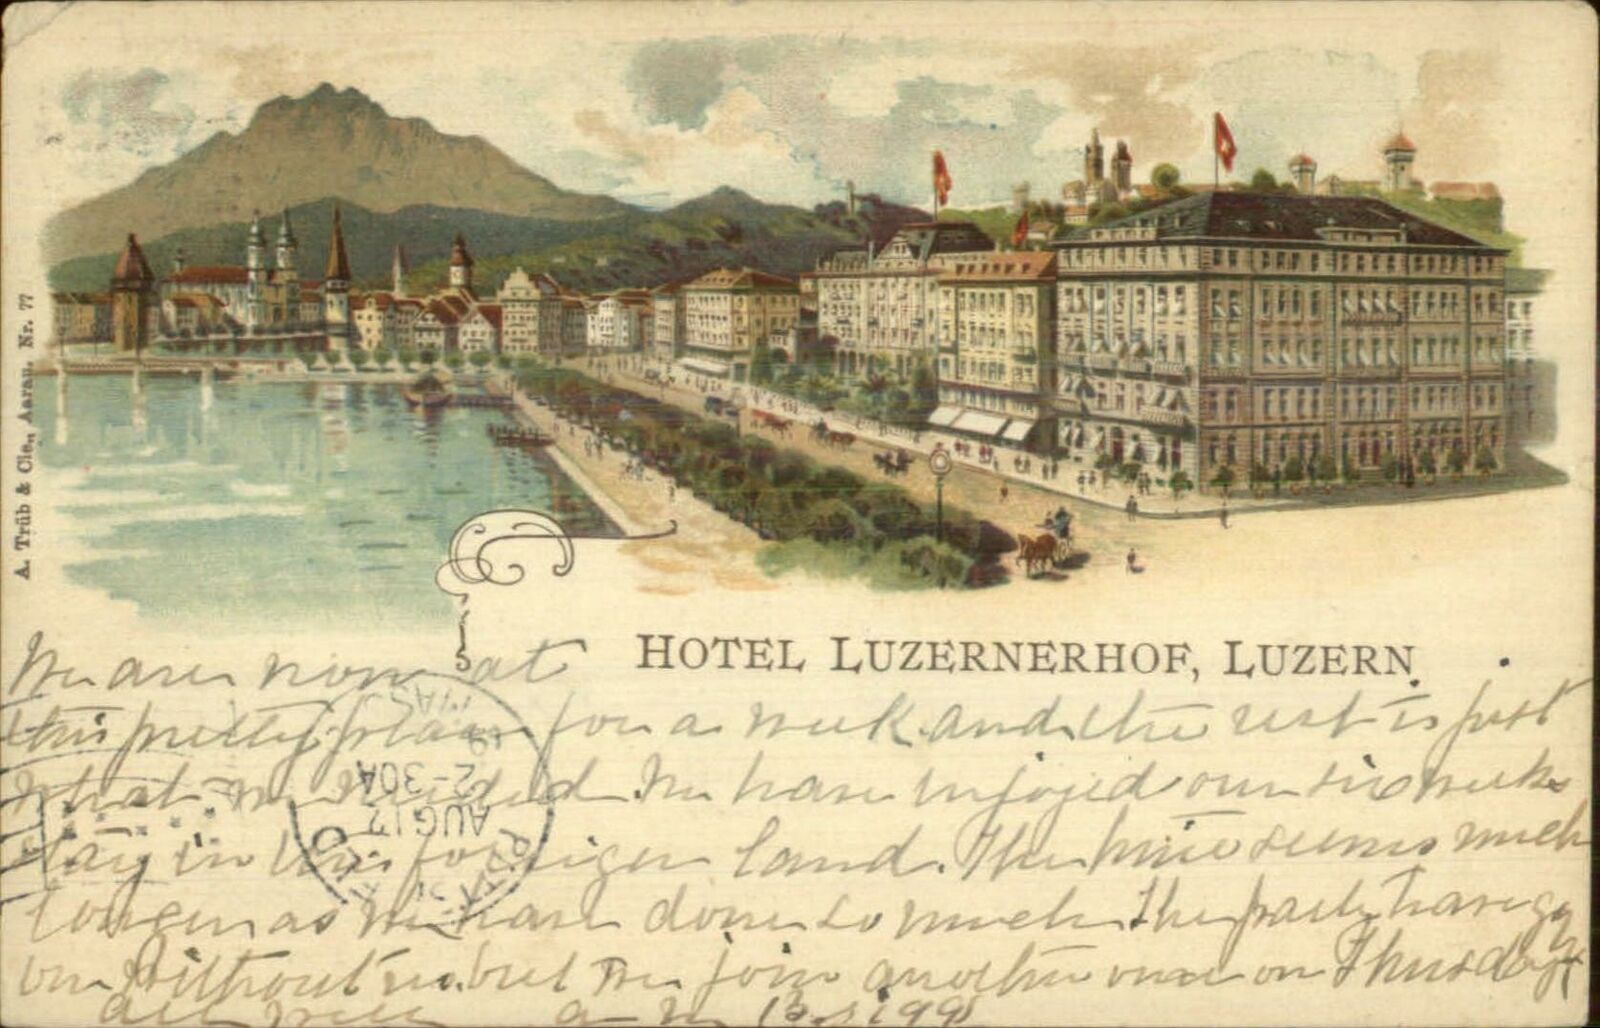 A. Trüb & Cie., Aarau. Nr. 77
HOTEL LUZERNERHOF, LUZERN.
We are now at
this pretty place for a week and the rest is just
what we needed. We have enjoyed our six weeks
stay in this foreign land. The time seems much
longer as we have done so much. The party have go
on without us. but we join another one on Thursday
all well
MAS
98
2-30A
AUG 17
REC'D